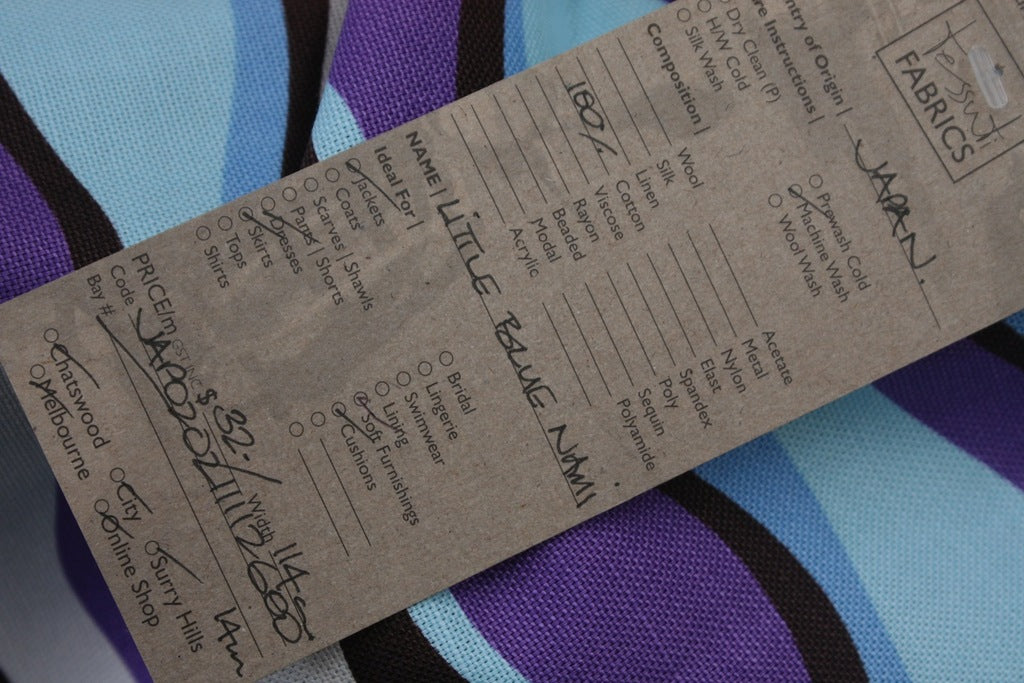 Tessuti
FABRICS
ntry of Origin | JAPAN.
re Instructions |
Dry Clean (P)
H/W Cold
Silk Wash
Prewash Cold
Machine Wash
Wool Wash
Composition |
Wool
Silk
Linen
100% Cotton
Viscose
Rayon
Beaded
Modal
Acrylic
Acetate
Metal
Nylon
Elast
Spandex
Poly
Sequin
Polyamide
NAME | LITTLE BLUE NAMI
Ideal For |
Jackets
Coats
Scarves | Shawls
Pants | Shorts
Dresses
Skirts
Tops
Shirts
Bridal
Lingerie
Swimwear
Lining
Soft Furnishings
Cushions
PRICE/m GST INC $32.- Width 114cm
Code
Bay # 14m
Chatswood
City
Surry Hills
Melbourne
Online Shop